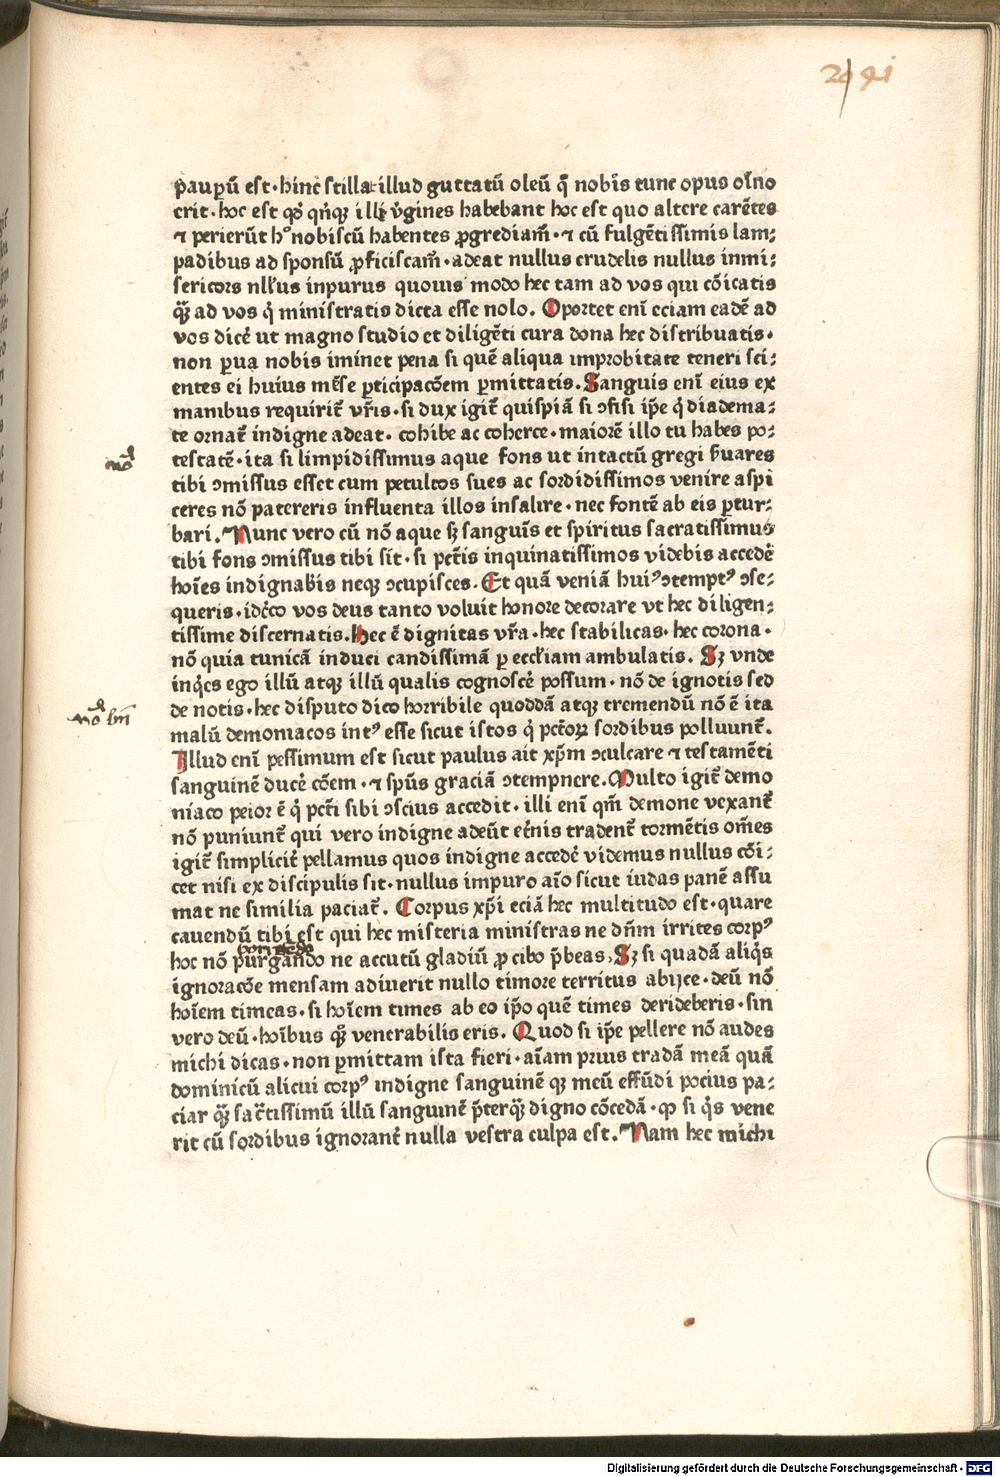 291
paupū est · hinc stilla illud guttatū oleū q̄ nobis tunc opus oīno
erit · hoc est qd' qn̄qꝫ illi v̓gines habebant hoc est quo altere carētes
⁊ perierūt hꝰ nobiscū habentes ꝓgrediam̄ · ⁊ cū fulgētissimis lam⸗
padibus ad sponsū ꝓficiscam̄ · adeat nullus crudelis nullus inmi⸗
sericors nll'us inpurus quouis modo hec tam ad vos qui cōicatis
qꝫ̄ ad vos q̓ ministratis dicta esse nolo. Oportet enī eciam eadē ad
vos dicē ut magno studio et diligēti cura dona hec distribuatis ·
non ꝑua nobis iminet pena si quē aliqua improbitate teneri sci⸗
entes ei huius mēse ꝑticipacōem ꝑmittatis. Sanguis enī eius ex
manibus requirit̄ vr̄is · si dux igit̄ quispiā si ꝯsi ip̄e q̓ diadema⸗
te ornat̄ indigne adeat · cohibe ac coherce · maiorē illo tu habes po⸗
testatē · ita si limpidissimus aque fons ut intactū gregi ẜuares
tibi ꝯmissus esset cum petulcos sues ac sordidissimos venire aspi
ceres nō patereris influenta illos insalire · nec fontē ab eis ꝑtur⸗
bari. Nunc vero cū nō aque sꝫ sanguīs et spiritus sacratissimus
tibi fons ꝯmissus tibi sit · si pc̄tīs inquinatissimos videbis accedē
hoīes indignabis neqꝫ ꝯcupisces. Et quā veniā huiꝰ ꝯtemptꝰ ꝯse⸗
queris · idc̓co vos deus tanto voluit honore decorare vt hec diligen⸗
tissime discernatis. Hec ē dignitas vr̄a · hec stabilicas · hec corona ·
nō quia tunicā induci candissimā ꝑ eccl'iam ambulatis. Sꝫ vnde
inq̓cs ego illū atqꝫ illū qualis cognoscē possum · nō de ignotis sed
de notis · hec disputo dico horribile quoddā atqꝫ tremendū nō ē ita
malū demoniacos intꝰ esse sicut istos q̓ pct̄oꝝ sordibus polluunt̄.
Illud enī pessimum est sicut paulus ait xp̄m ꝯculcare ⁊ testamēti
sanguinē ducē cōem · ⁊ sp̄us graciā ꝯtempnere. Multo igit̄ demo
niaco peior ē q̓ pct̄i sibi ꝯscius accedit · illi enī qm̄ demone vexant̄
nō puniunt̄ qui vero indigne adeūt et̄nis tradent̄ tormētis om̄es
igit̄ simplicit̄ pellamus quos indigne accedē videmus nullus cōi⸗
cet nisi ex discipulis sit · nullus impuro aīo sicut iudas panē assu
mat ne similia paciat̄. Corpus xp̄i eciā hec multitudo est · quare
cauendū tibi est qui hec misteria ministras ne dn̄m irrites corpꝰ
hoc nō purgando ne accutū gladiū ꝓ cibo p̄beas, Sꝫ si quadā aliq̓s
ignoracōe mensam adiuerit nullo timore territus abijce · deū nō
hoīem timeas · si hoīem times ab eo ip̄o quē times derideberis · sin
vero deū · hoībus qꝫ̄ venerabilis eris. Quod si ip̄e pellere nō audes
michi dicas · non ꝑmittam ista fieri · aīam prius tradā meā quā
dominicū alicui corpꝰ indigne sanguinē qꝫ meū effūdi pocius pa⸗
ciar qꝫ̄ sac̄tissimū illū sanguinē p̄terqꝫ̄ digno cōcedā · ꝙ si q̓s vene
rit cū sordibus ignorant̄ nulla vestra culpa est. Nam hec michi
Digitalisierung gefördert durch die Deutsche Forschungsgemeinschaft - DFG